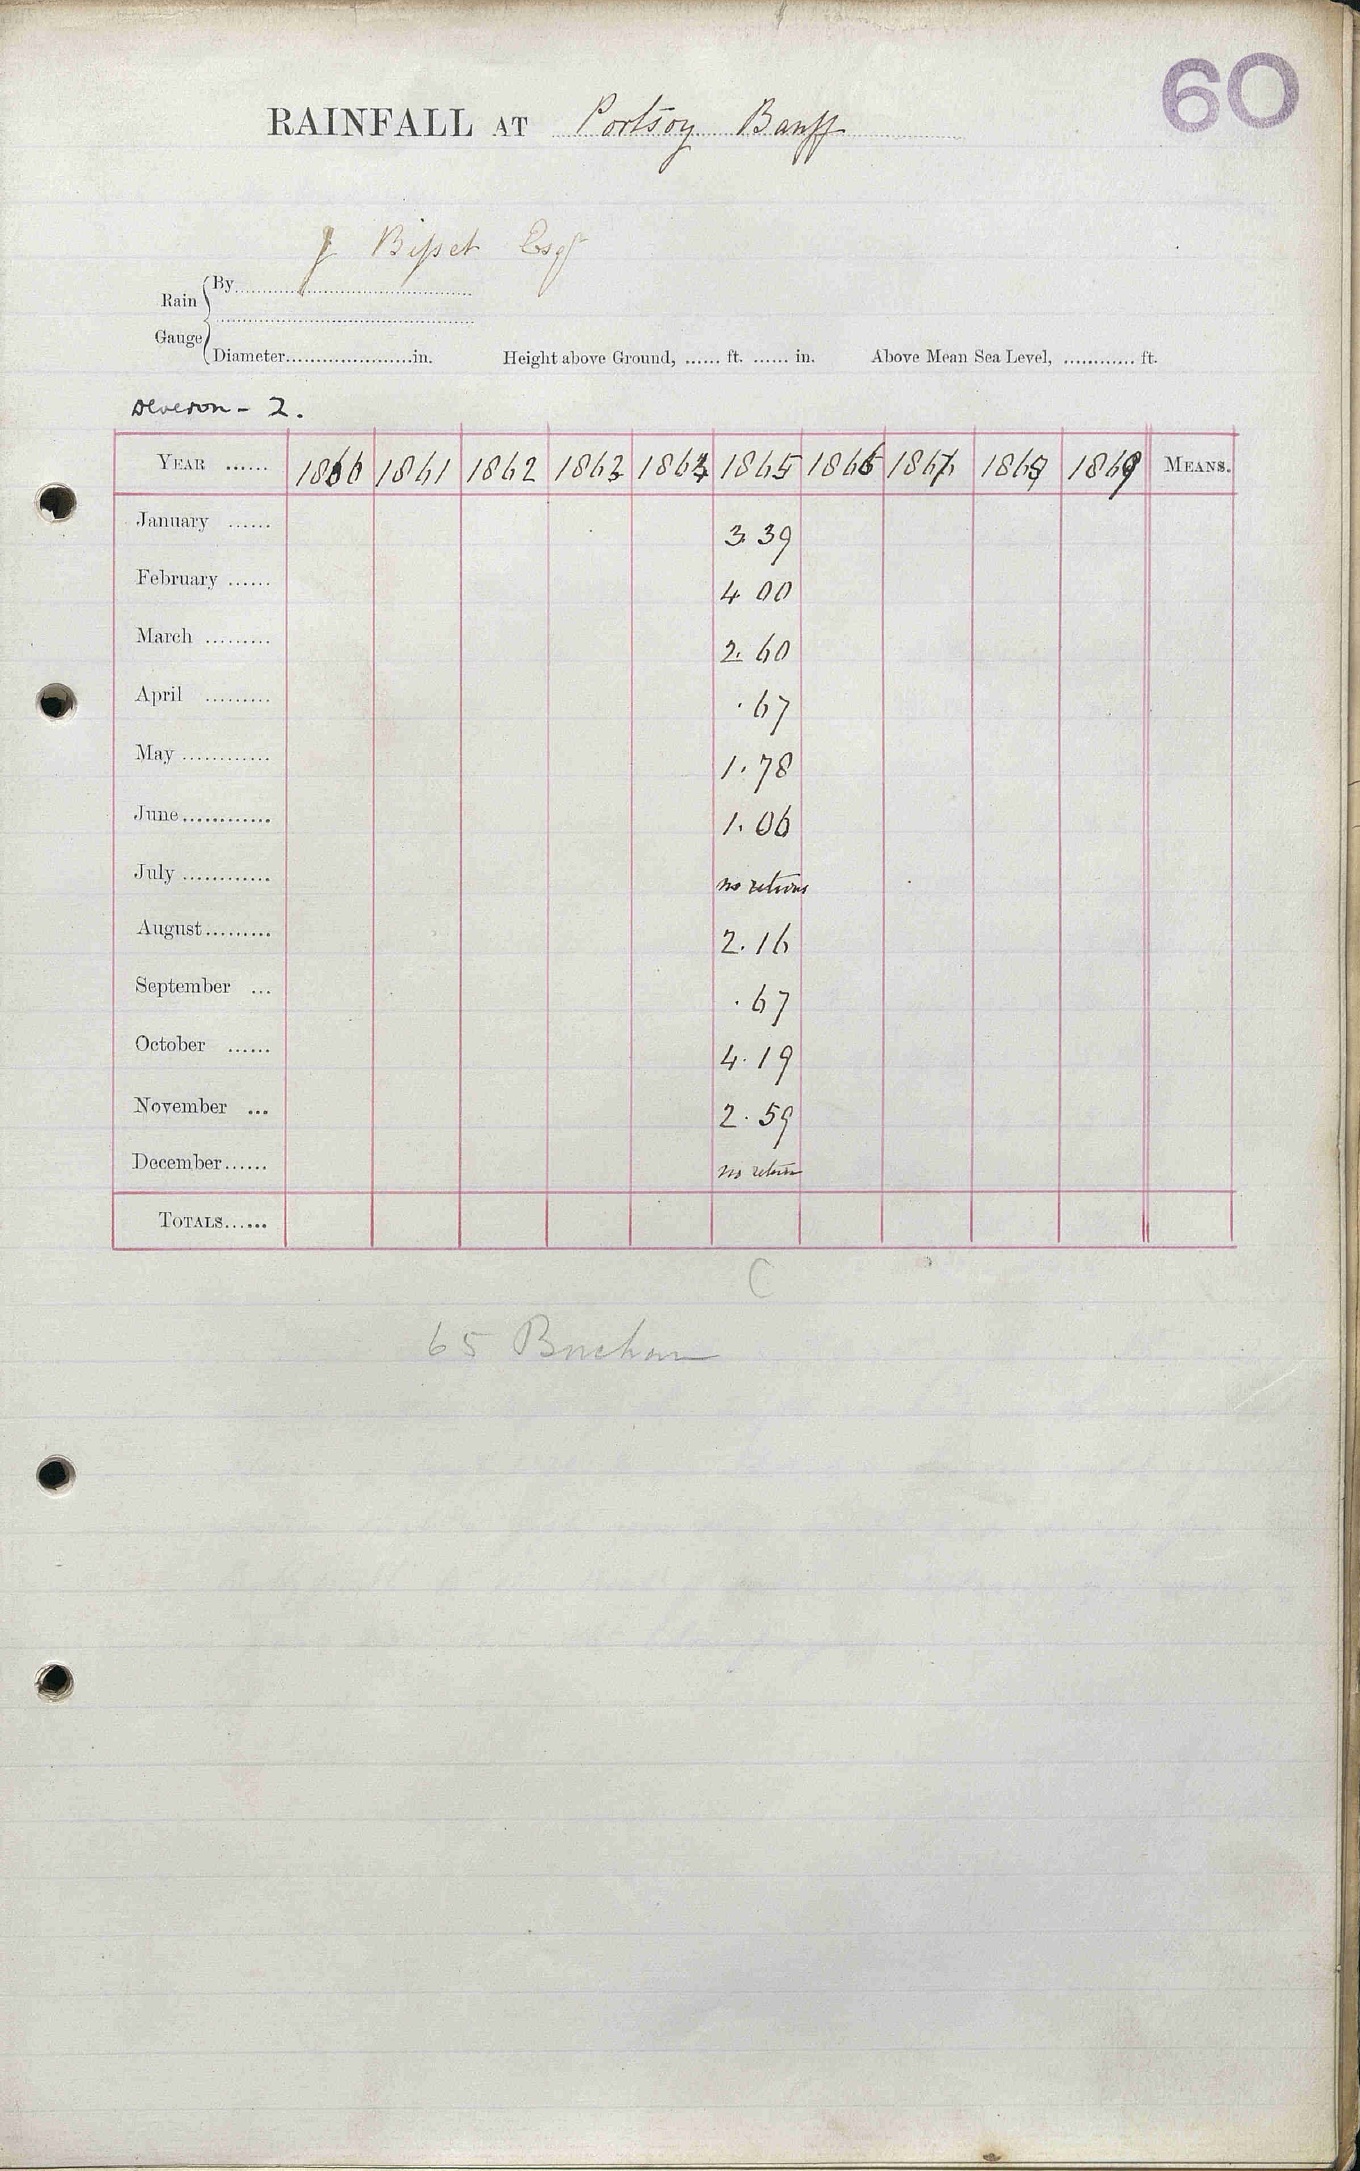 60
RAINFALL AT Portsoy Banff
J Bisset Esqr
Rain Gauge
By
Diameter.....................in. Height above Ground, ...... ft. ...... in. Above Mean Sea Level, ............ ft.
Deveron - 2.
YEAR ...... 1860 1861 1862 1863 1864 1865 1866 1867 1868 1869 MEANS.
January ...... 3.39
February ...... 4 00
March ......... 2.60
April ......... .67
May ............ 1.78
June............ 1.06
July ............ no returns
August......... 2.16
September ... .67
October ...... 4.19
November ... 2.59
December...... no return
TOTALS......
C
65 Buchan